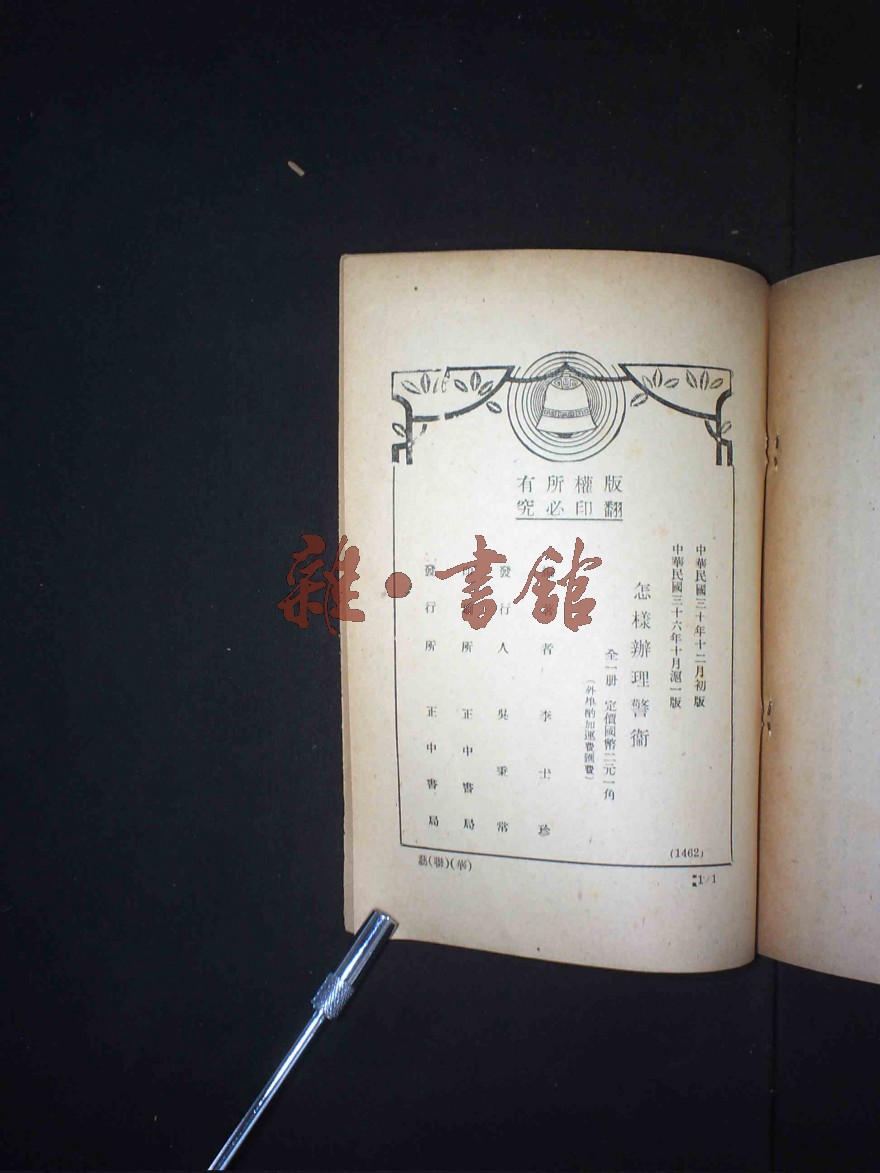 版權所有
翻印必究
中華民國三十年十二月初版
中華民國三十六年十月滬一版
怎樣辦理警衛
全一册 定價國幣二元一角
(外埠酌加運費匯費)
者 李士珍
發行人 吳秉常
所 正中書局
發行所 正中書局
(1462)
(華)(聯)
1/1
雜·書館